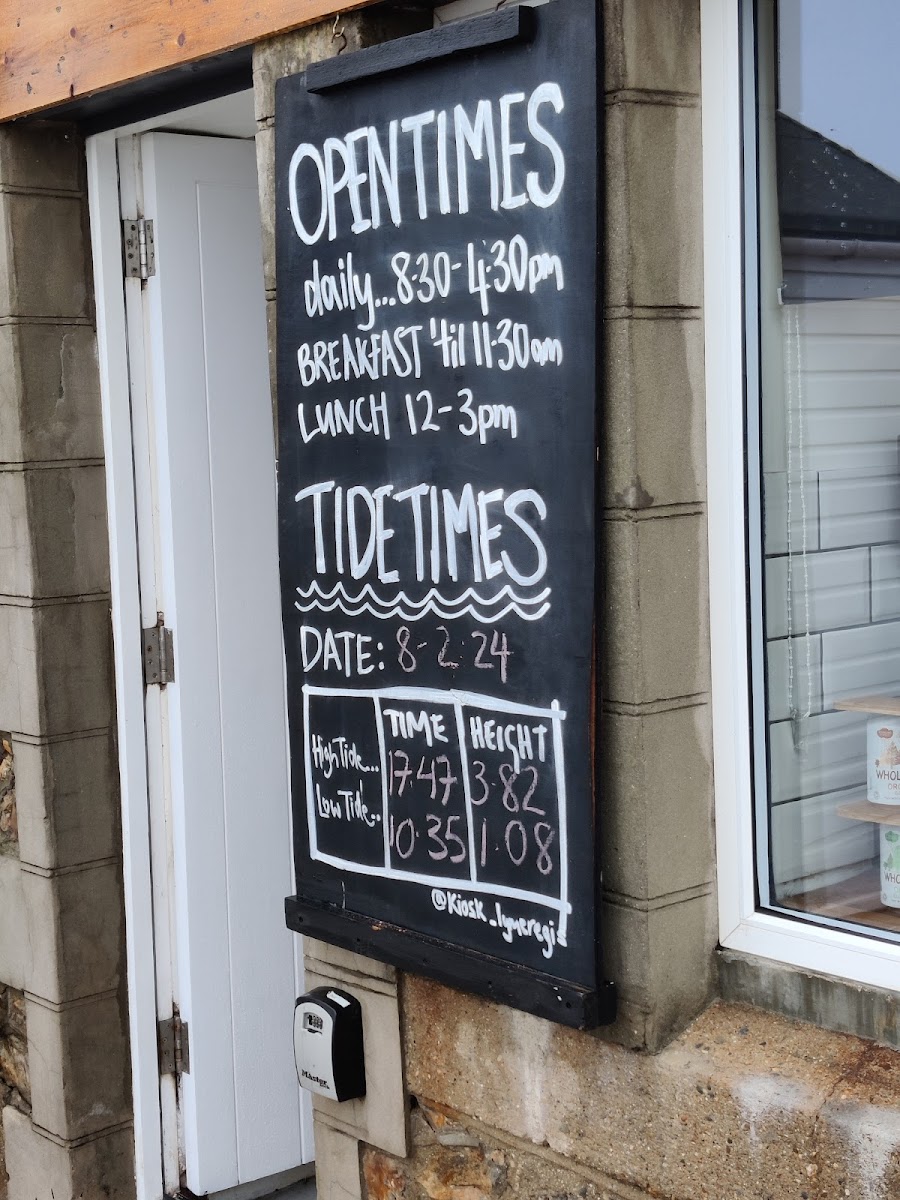 OPEN TIMES
daily...8·30-4·30pm
BREAKFAST 'til 11·30am
LUNCH 12-3pm
TIDE TIMES
DATE: 8-2-24
TIME HEIGHT
High Tide.. 17.47 3.82
Low Tide.. 10.35 1.08
@Kiosk_lymeregis
Master
WHOL
WHO